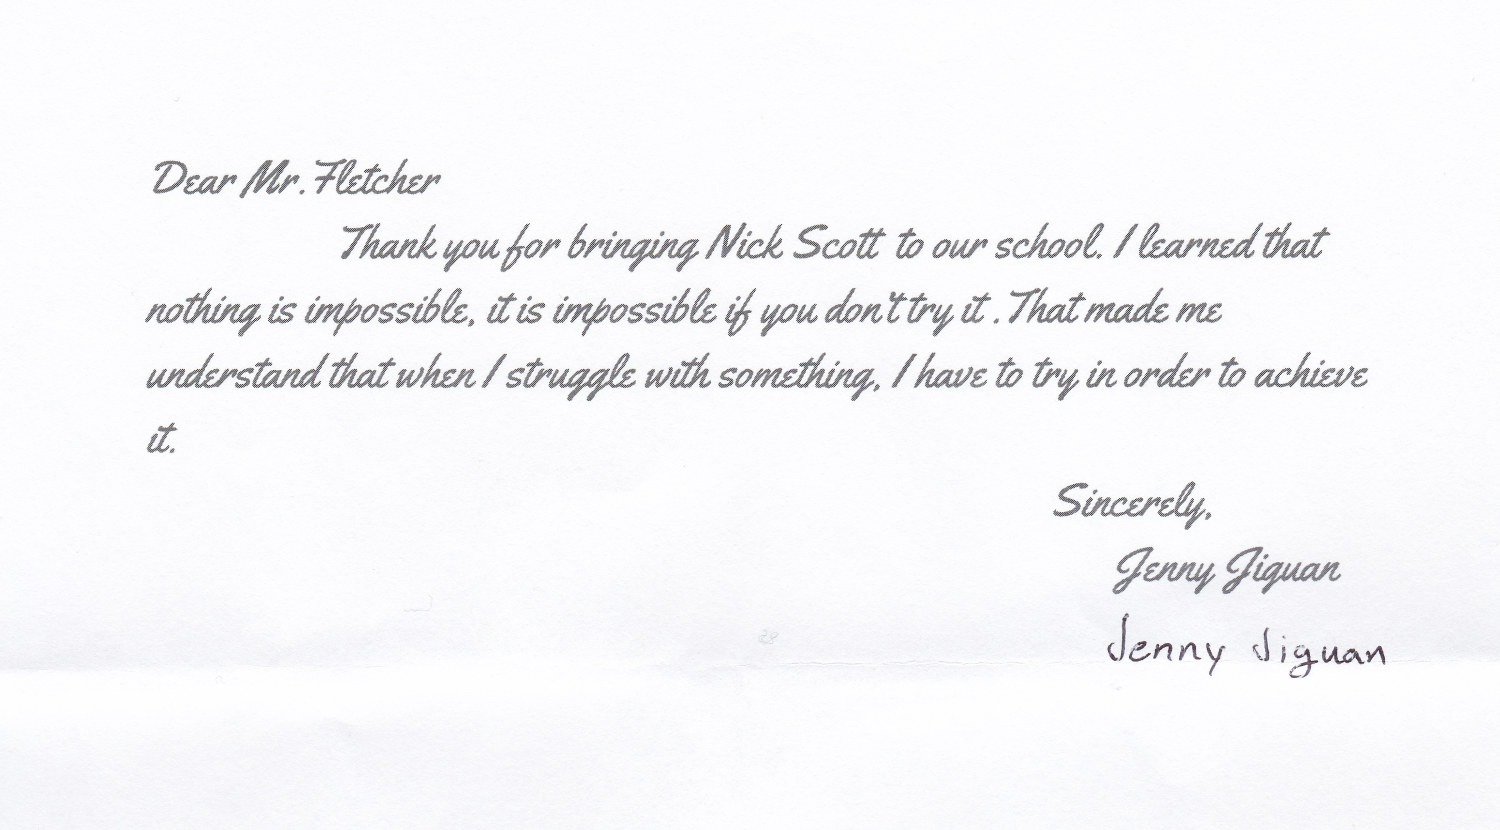 Dear Mr. Fletcher
Thank you for bringing Nick Scott to our school. I learned that
nothing is impossible, it is impossible if you don't try it . That made me
understand that when I struggle with something, I have to try in order to achieve
it.
Sincerely,
Jenny Jiguan
Jenny Jiguan